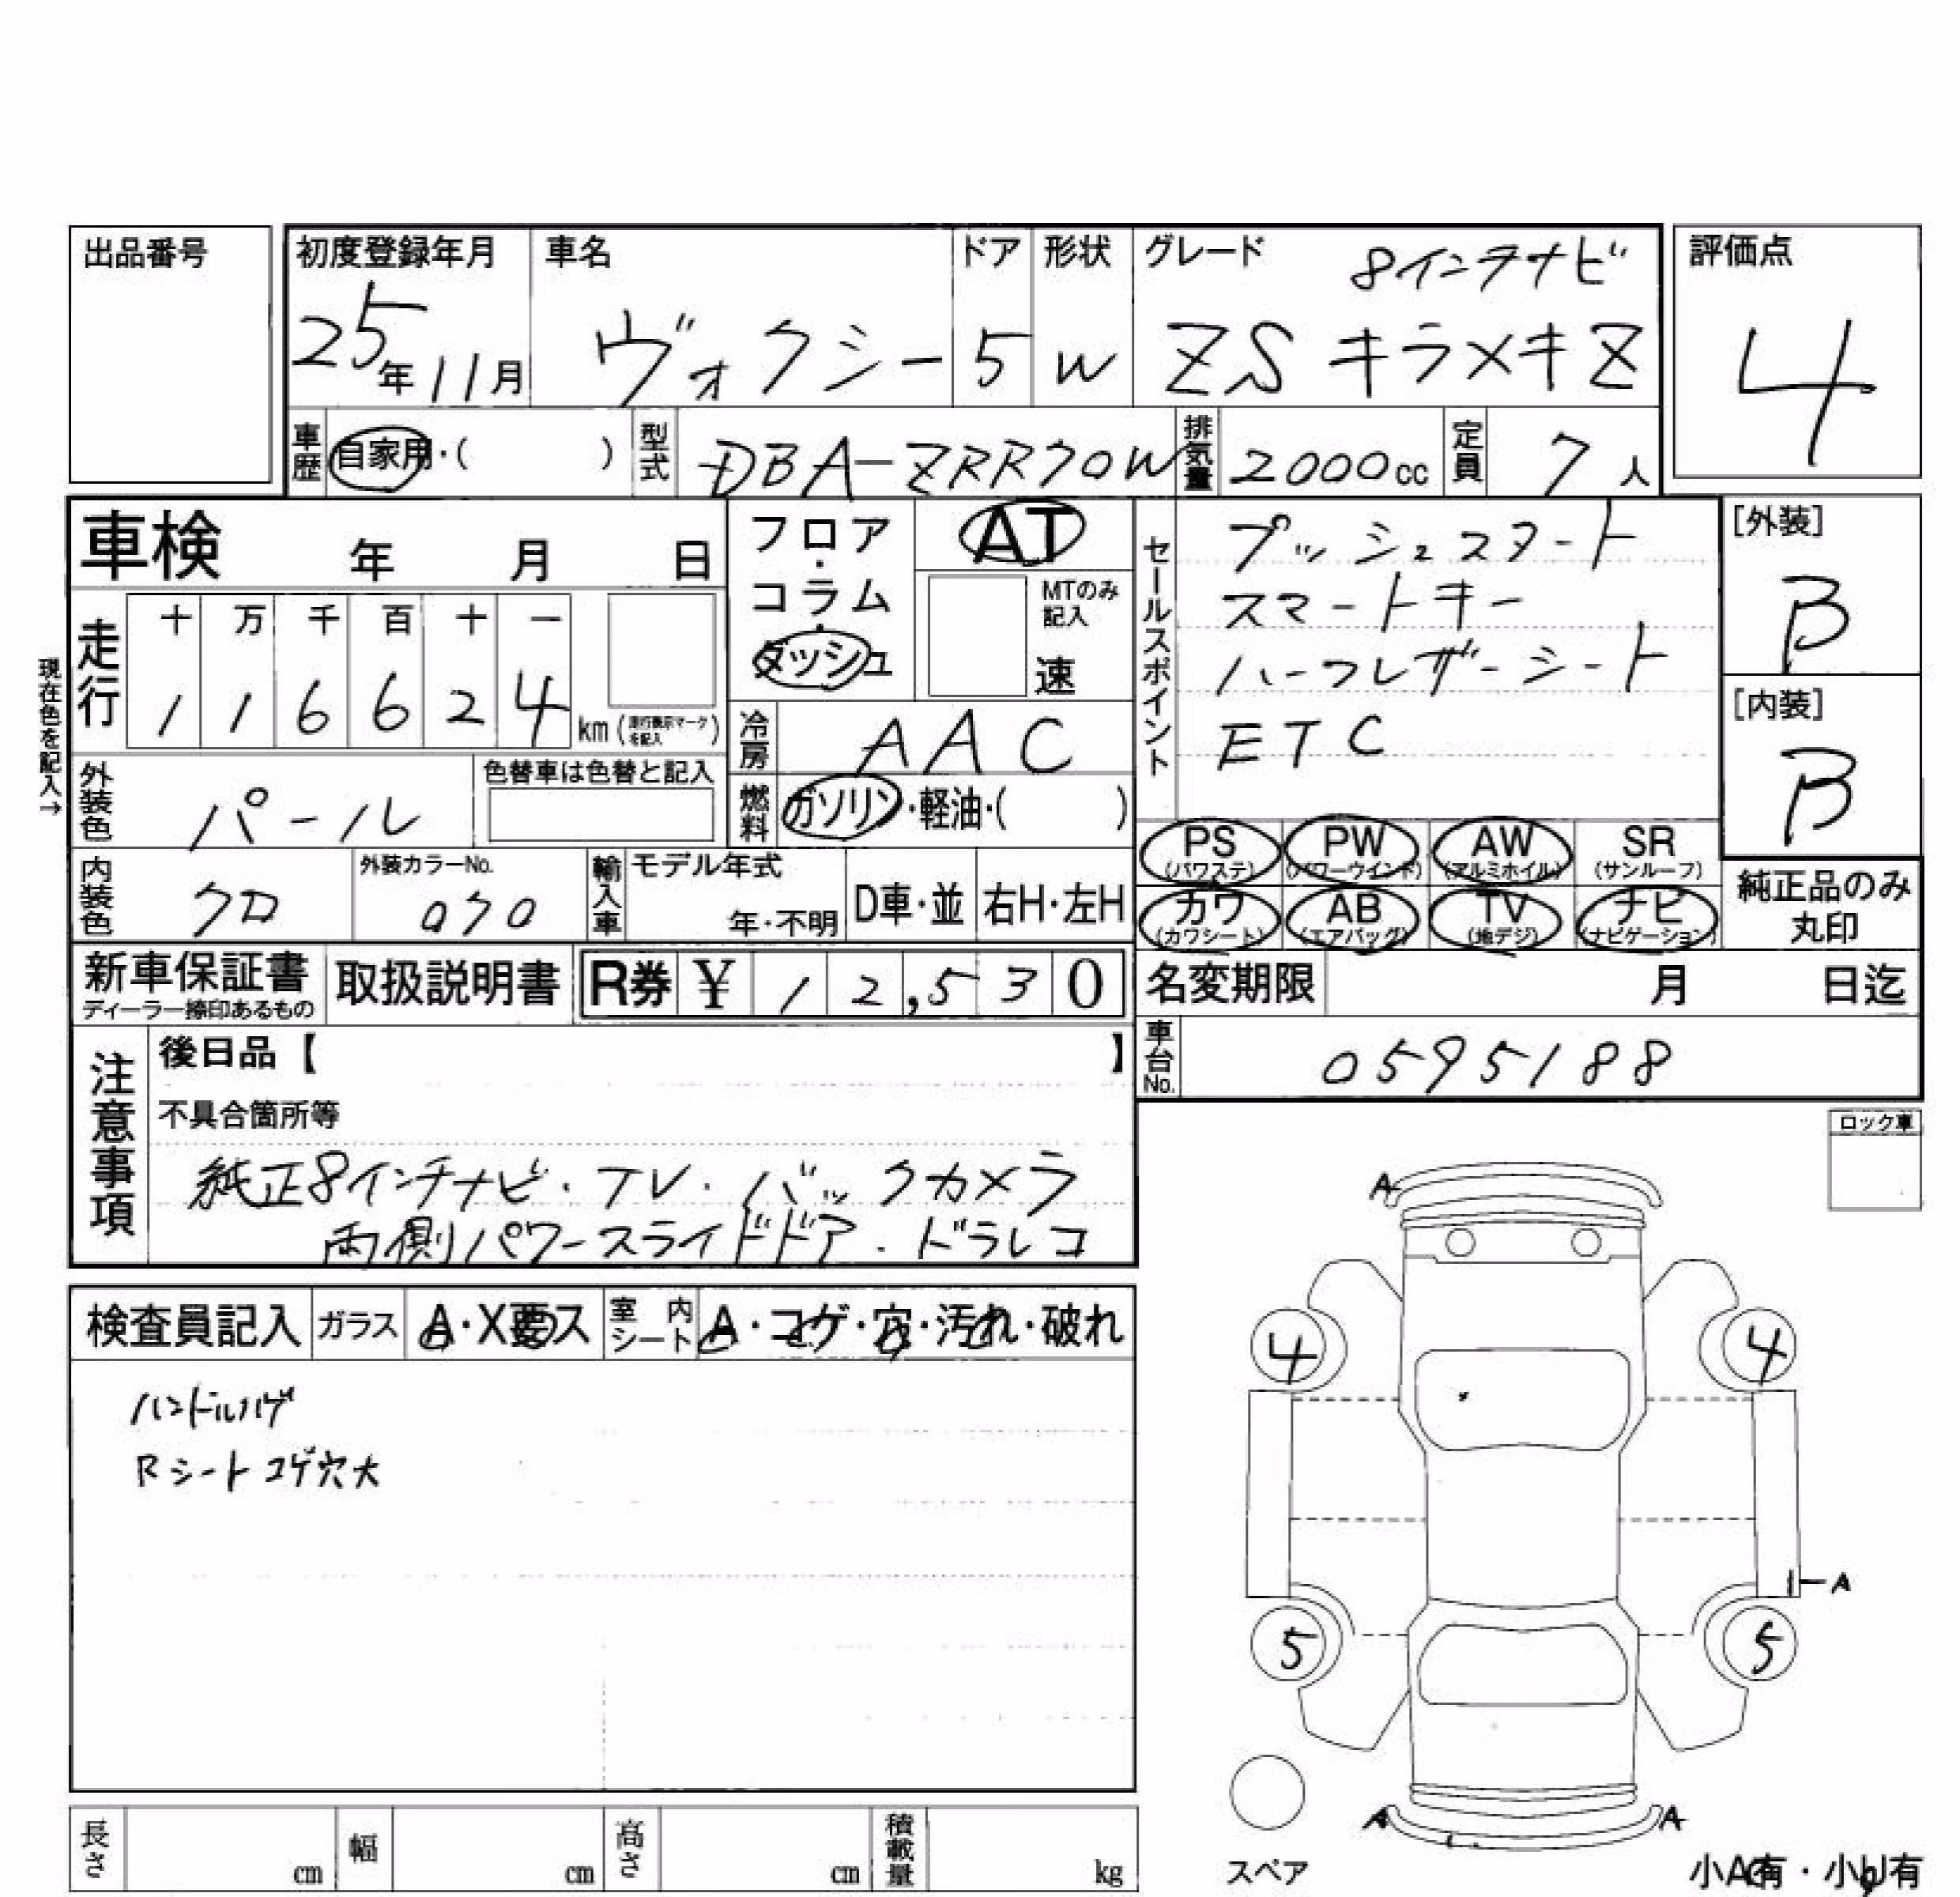 出品番号
初度登録年月
25年11月
車名
ヴォクシー
ドア
5
形状
W
グレード
8インチナビ
ZS キラメキZ
評価点
4
車歴
自家用・( )
型式
DBA-ZRR70W
排気量
2000cc
定員
7人
車検 年 月 日
フロア・コラム・ダッシュ
AT
MTのみ記入
速
セールスポイント
プッシュスタート
スマートキー
ハーフレザーシート
ETC
[外装]
B
[内装]
B
現在色を記入→
走行
十 万 千 百 十 一
1 1 6 6 2 4 km
(走行表示マークを記入)
冷房
AAC
外装色
パール
色替車は色替と記入
燃料
ガソリン・軽油・( )
PS (パワステ)
PW (パワーウインド)
AW (アルミホイル)
SR (サンルーフ)
カワ (カワシート)
AB (エアバッグ)
TV (地デジ)
ナビ (ナビゲーション)
純正品のみ丸印
内装色
クロ
外装カラーNo.
070
輸入車
モデル年式
年・不明
D車・並
右H・左H
新車保証書
ディーラー捺印あるもの
取扱説明書
R券 ¥ 12,530
名変期限 月 日迄
車台No.
0595188
注意事項
後日品【 】
不具合箇所等
純正8インチナビ・TV・バックカメラ
両側パワースライドドア・ドラレコ
ロック車
検査員記入
ガラス
A・X要ス
室内シート
A・コゲ・穴・汚れ・破れ
ハンドルハゲ
Rシートコゲ穴大
A
4 4
A
5 5
A A
スペア
小A有・小U有
長さ cm
幅 cm
高さ cm
積載量 kg